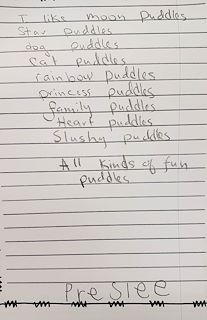 I like moon puddles
Star puddles
dog puddles
cat puddles
rainbow puddles
princess puddles
family puddles
Heart puddles
Slushy puddles
All kinds of fun
puddles
Preslee